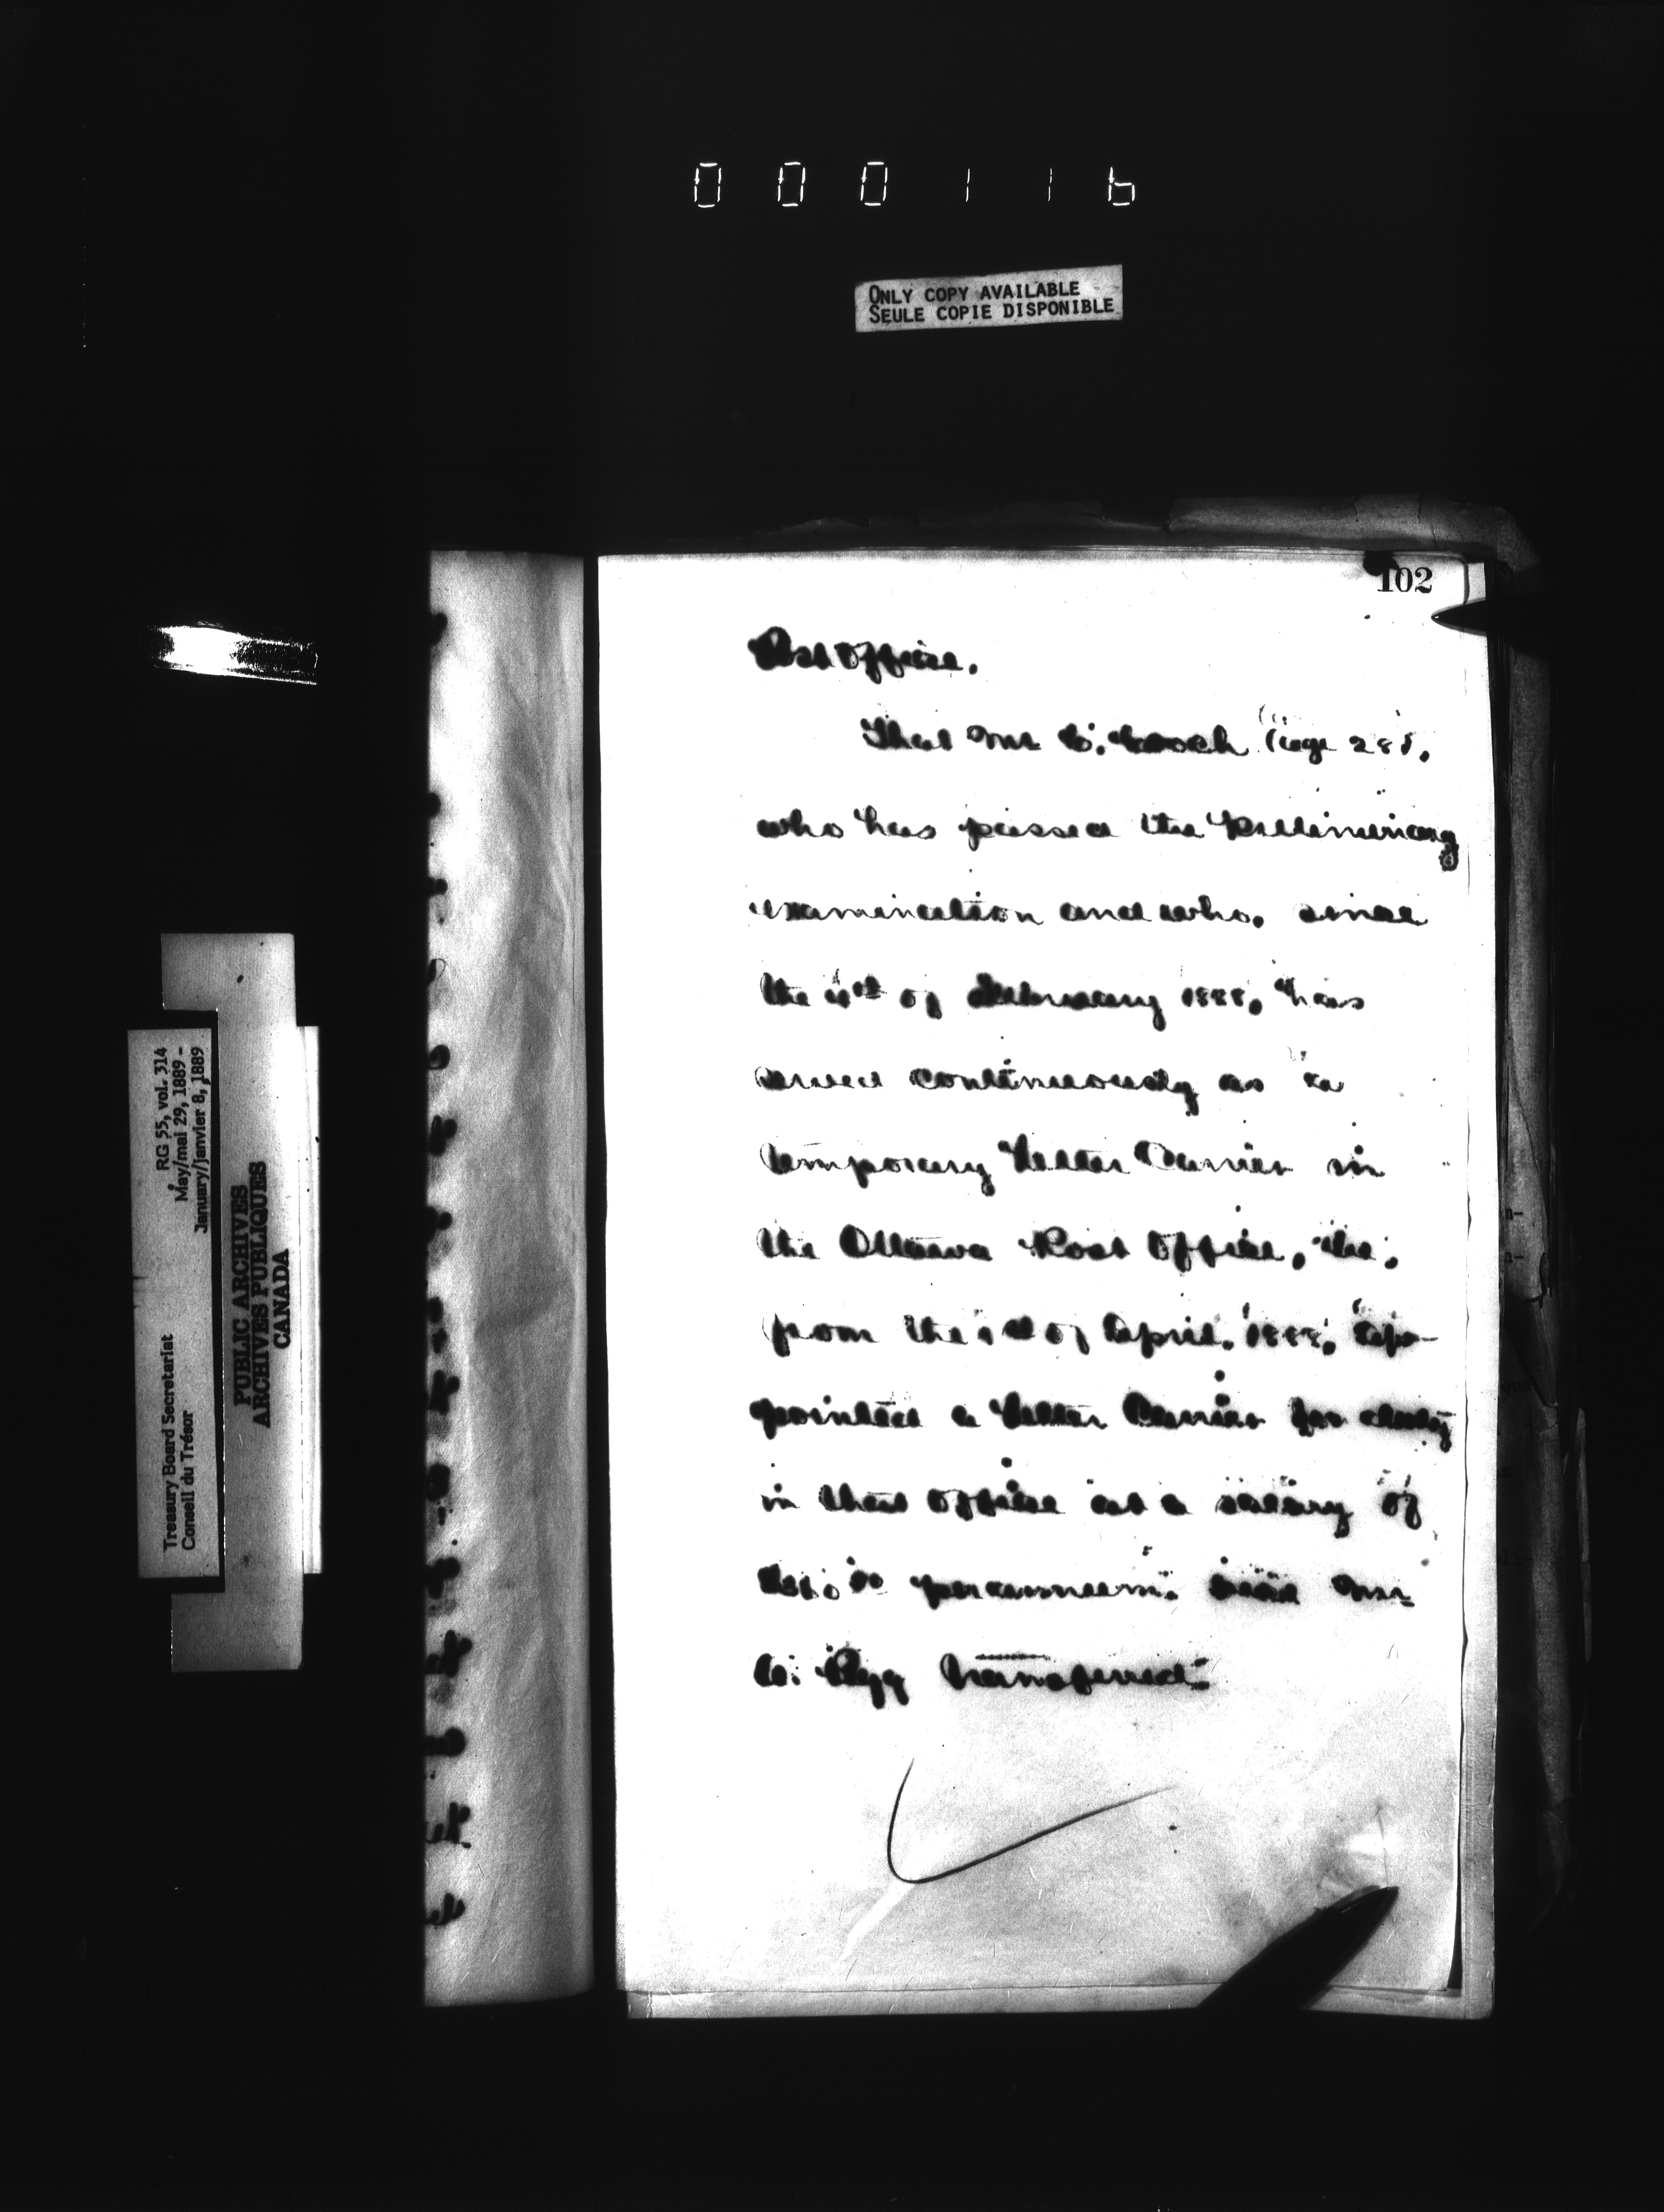 000116
ONLY COPY AVAILABLE
SEULE COPIE DISPONIBLE
RG 55, vol. 314
May/mai 29, 1889 -
January/janvier 8, 1889
Treasury Board Secretariat
Conseil du Trésor
PUBLIC ARCHIVES
ARCHIVES PUBLIQUES
CANADA
102
Post Office.
That Mr (age 28).
who has passed the Preliminary
examination and who, since
the of February 1888, has
served continuously as a
temporary Letter Carrier in
the Ottawa Post Office, be,
from the 1st of April, 1888, ap-
pointed a Letter Carrier for duty
in that office at a salary of
per annum. vice Mr
transferred.